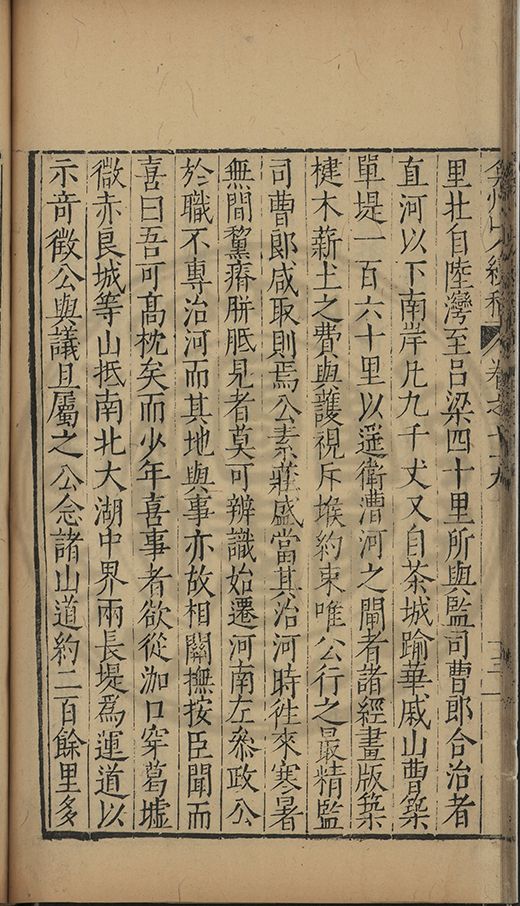 弇州山人續稿 卷之
里壯自陸灣至呂梁四十里所與監司曹郎合治者
直河以下南岸凡九千丈又自茶城踰華戚山曹築
單堤一百六十里以遥衛漕河之閘者諸經畫版築
楗木薪土之費與護視斥堠約束唯公行之最精監
司曹郎咸取則焉公素莊盛當其治河時徃來寒暑
無間黧瘠胼胝見者莫可辨識始遷河南左叅政公
於職不專治河而其地與事亦故相關撫按臣聞而
喜曰吾可高枕矣而少年喜事者欲從泇口穿葛墟
微赤良城等山抵南北大湖中界兩長堤爲運道以
示竒徵公與議且屬之公念諸山道約二百餘里多